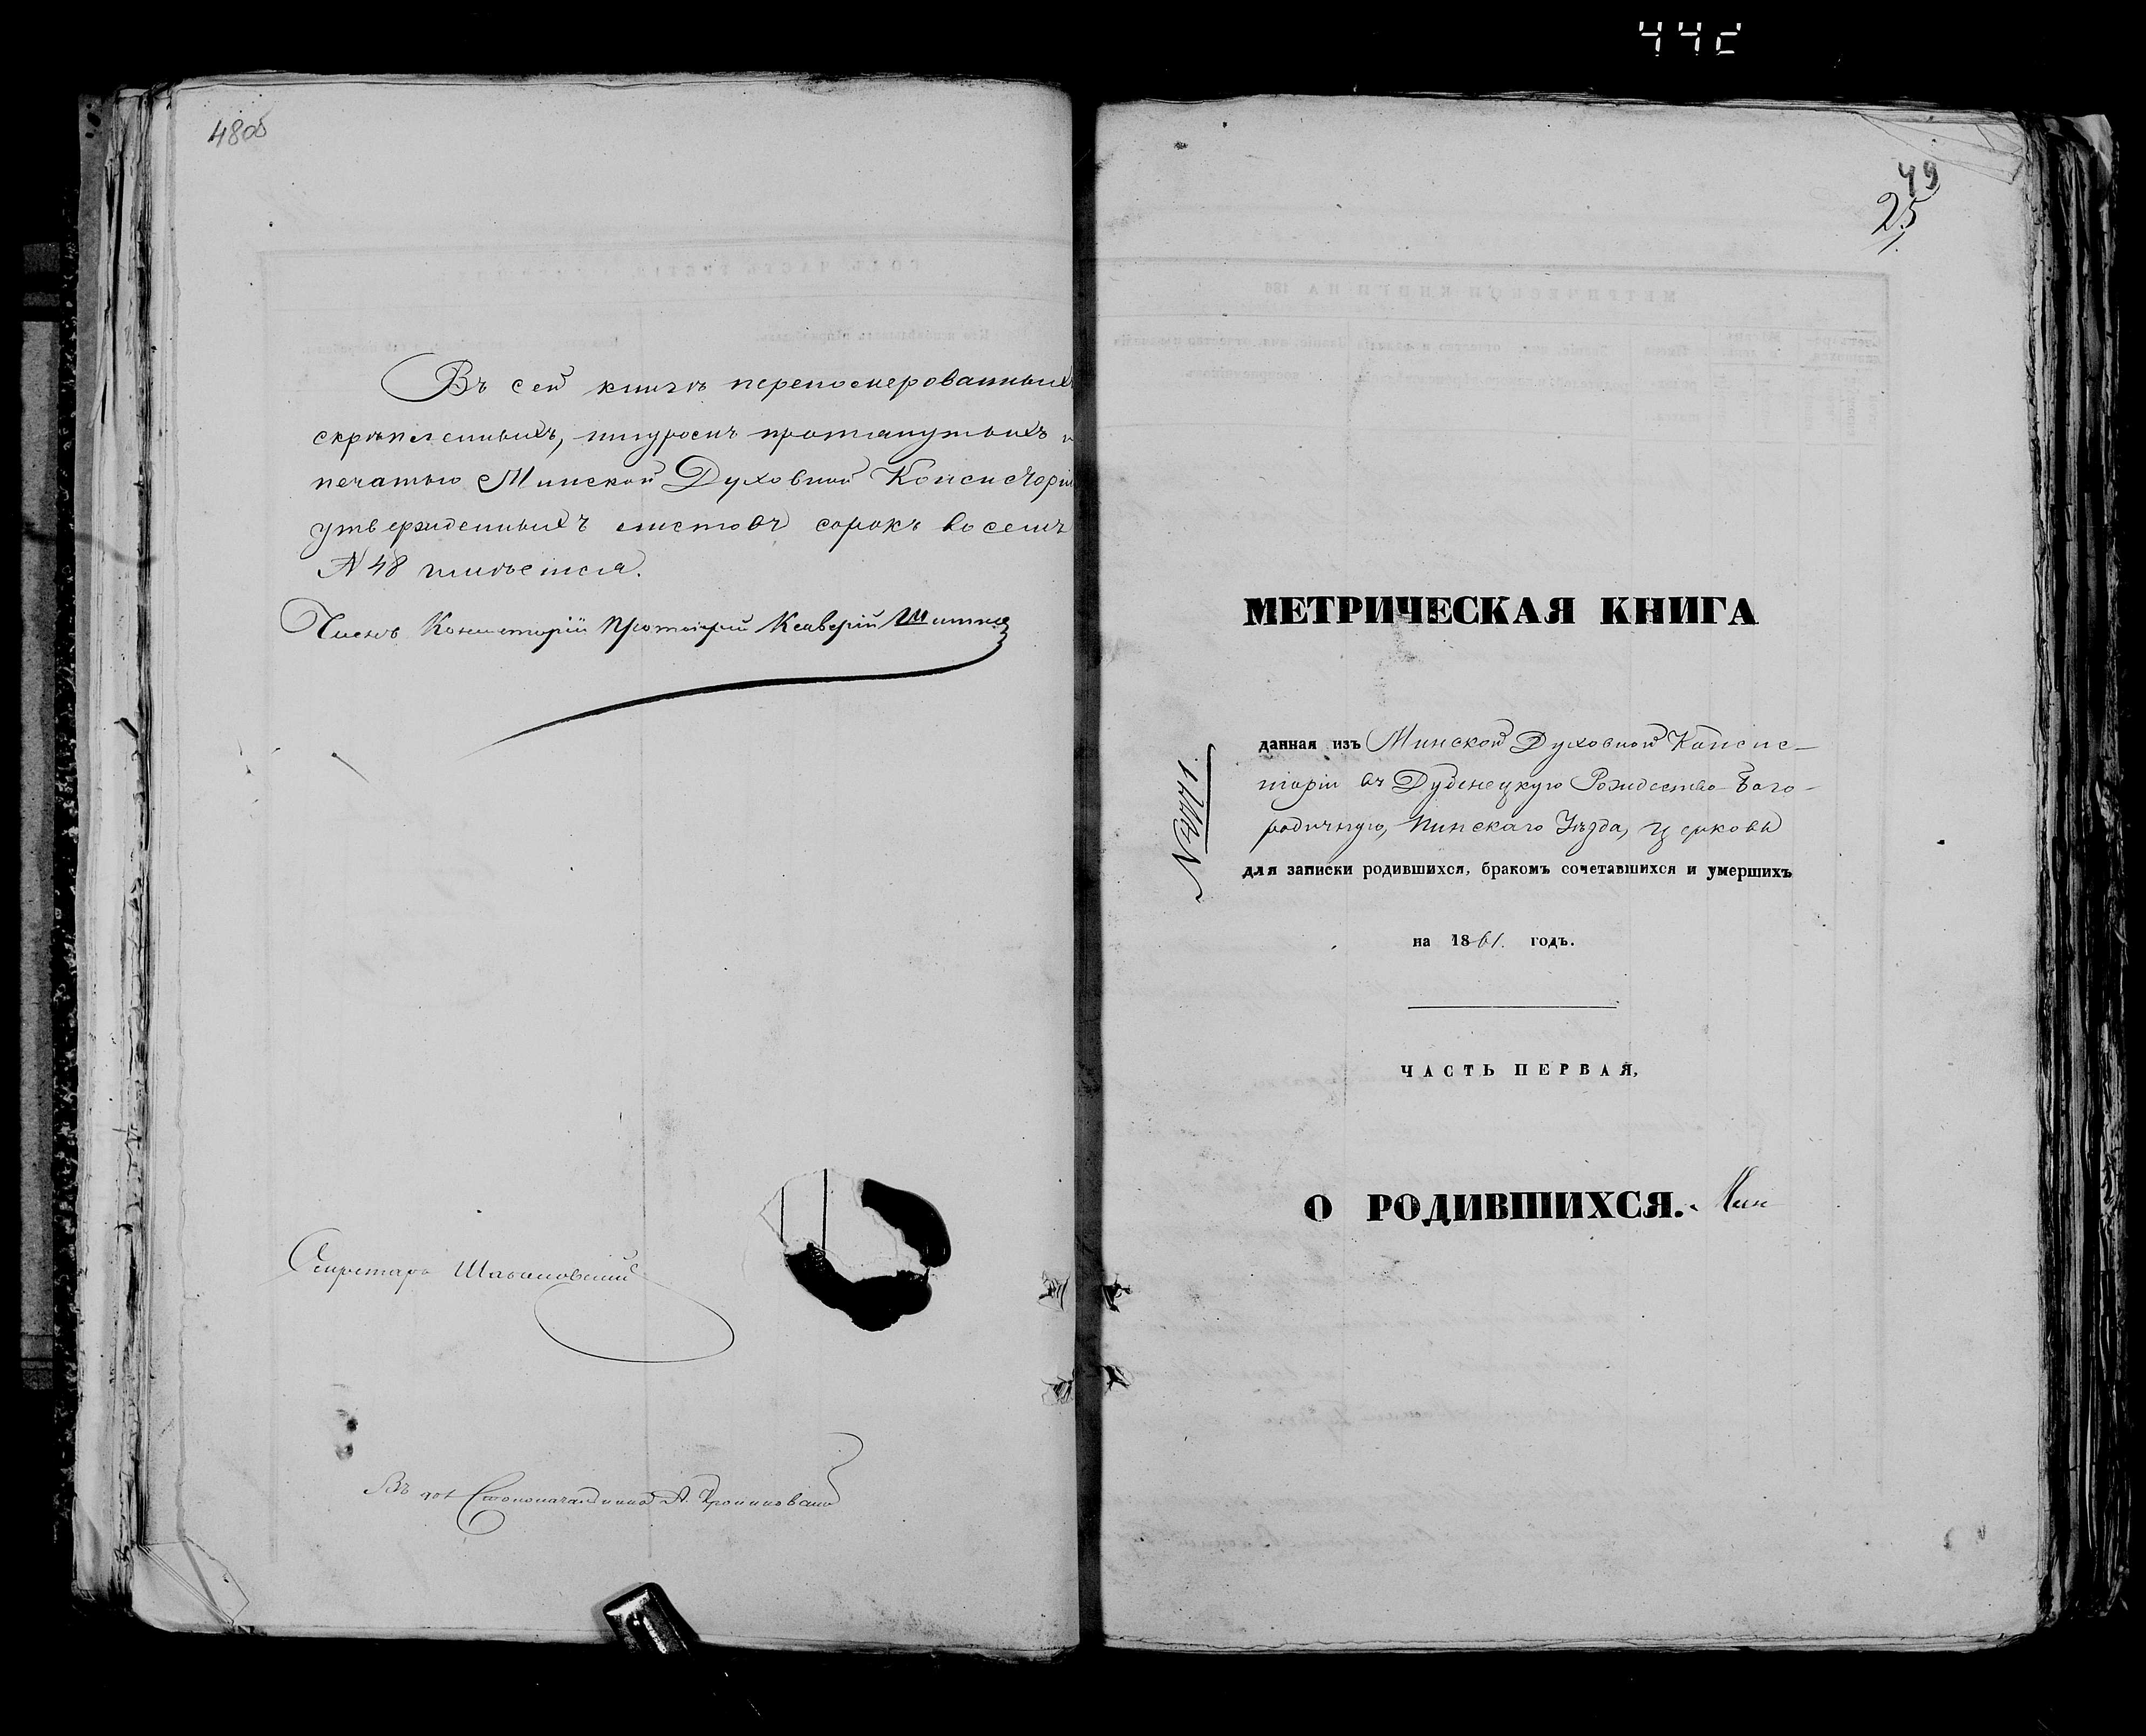 44c
48об
Въ сей книгѣ перенумерованныхъ
скрѣпленныхъ, шнуромъ протянутыхъ и
печатью Минской Духовной Консисторіи
утвержденныхъ листовъ сорокъ восемь
№ 48 имѣется.
Членъ Консисторіи Протоіерей Ксаверій
Секретарь
Въ дол. Столоначальника А.
49
25
МЕТРИЧЕСКАЯ КНИГА
данная изъ Минской Духовной Консис-
торіи въ Дубенецкую Рождество-Бого-
родичную, Пинскаго Уѣзда, церковь
для записки родившихся, бракомъ сочетавшихся и умершихъ
на 1861. годъ.
ЧАСТЬ ПЕРВАЯ,
О РОДИВШИХСЯ.